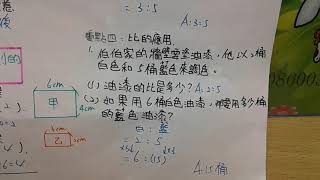 = 3 : 5
A: 3:5
重點四：比的應用
1. 伯伯家的牆壁要塗油漆，他以2桶
白色和5桶藍色來調色。
(1) 油漆的比是多少？A: 2:5
(2) 如果用6桶白色油漆，需要用多少桶
的藍色油漆？
白：藍
= 2 : 5
×3↓ ↓×3
= 6 : (15)
A: 15桶
6cm
甲
4cm
乙
2cm